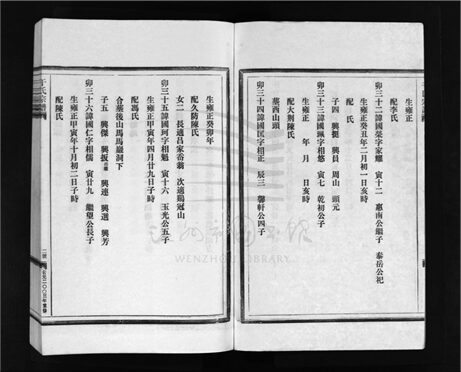 生雍正
配李氏
卯三十二諱國榮字家耀 寅十二 惠南公繼子 泰岳公祀
生雍正癸丑年二月初一日亥時
配 氏
子四 興擺 興員 周山 頭元
卯三十三諱國珮字相悠 寅七 乾初公子
生雍正 年 月 日亥時
配大荆陳氏
墓西山頭
卯三十四諱國匡字相正 辰三 馨軒公四子
于氏宗譜
生雍正癸卯年
配久防陳氏
女二 長適昌家畲翁 次適鷄冠山
卯三十五諱國珂字相魁 寅十六 玉光公五子
生雍正甲寅年四月廿九日子時
配馮氏
合墓後山馬馬巖洞下
子五 興傑 興振 興連 興選 興芳
卯三十六諱國仁字相儒 寅廿九 繼望公長子
生雍正甲寅年十月初二日子時
配陳氏
WENZHOU LIBRARY